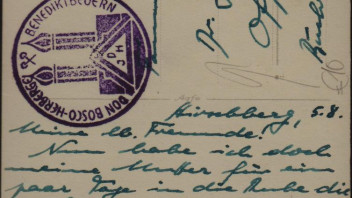 BENEDIKTBEUERN
DON BOSCO-HERBERGE
Dr.
Hirschberg, 5.8.
Meine lb. Freunde!
Nun habe ich doch
meine Mutter für ein
paar Tage in die Ruhe die